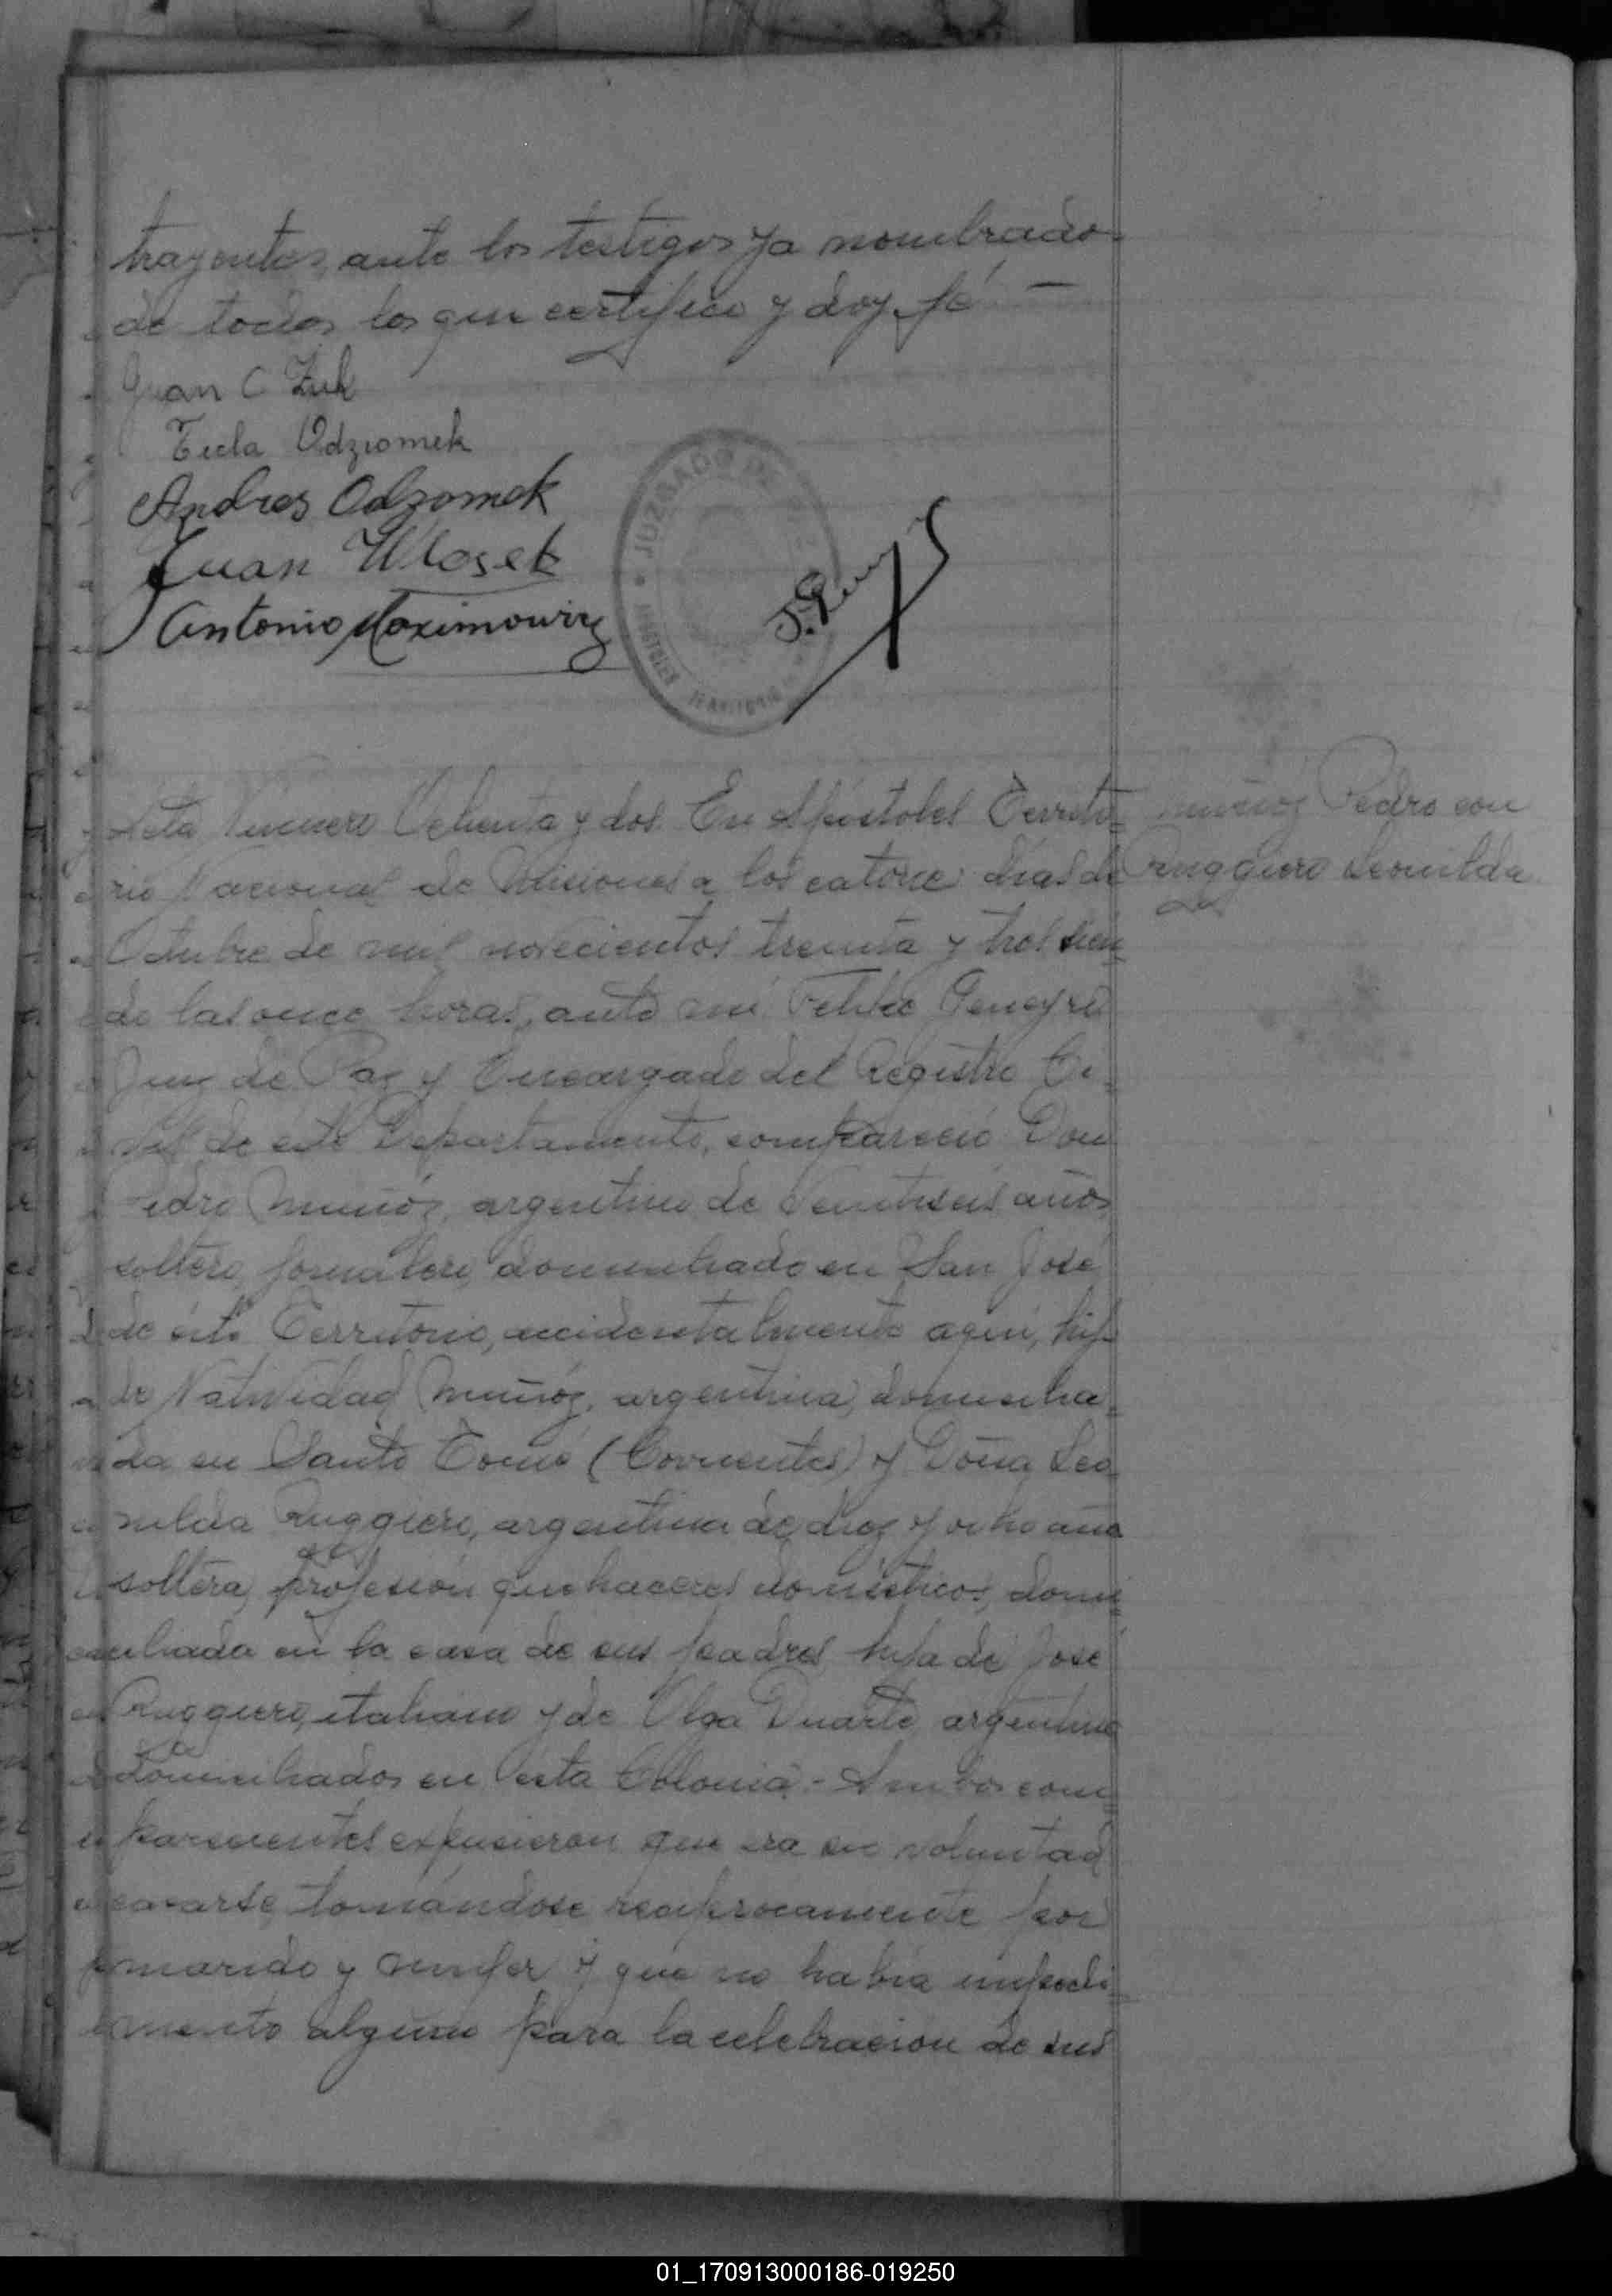 trayentes, ante los testigos ya nombrados
de todos los que certifico y doy fé —
Juan C Zuk
Tecla Odziomek
Andres Odzomek
Juan Wlosek
Antonio Maximowicz
JUZGADO DE PAZ
APOSTOLES
Acta Número Ochenta y dos. En Apóstoles Territo=
rio Nacional de Misiones a los catorce días de
Octubre de mil novecientos treinta y tres sien=
do las once horas, ante mí Felipe
Juez de Paz y Encargado del Registro Ci=
vil de este Departamento, compareció Don
Pedro Muñóz, argentino de veintiseis años
soltero, jornalero, domiciliado en San José
de éste Territorio, accidentalmente aquí, hijo
de Natividad Muñóz, argentina, domicilia=
da en Santo Tomé (Corrientes) y Doña Leo=
nilda Ruggiero, argentina de diez y ocho años
soltera, profesión quehaceres domésticos, domi=
ciliada en la casa de sus padres hija de José
Ruggiero, italiano y de Olga Duarte, argentina
domiciliados en ésta Colonia.- Ambos com=
parecientes expusieron que era su voluntad
casarse tomándose recíprocamente por
marido y mujer y que no había impedi=
mento alguno para la celebración de sus
Muñóz Pedro con
Ruggiero Leonilda
01_170913000186-019250